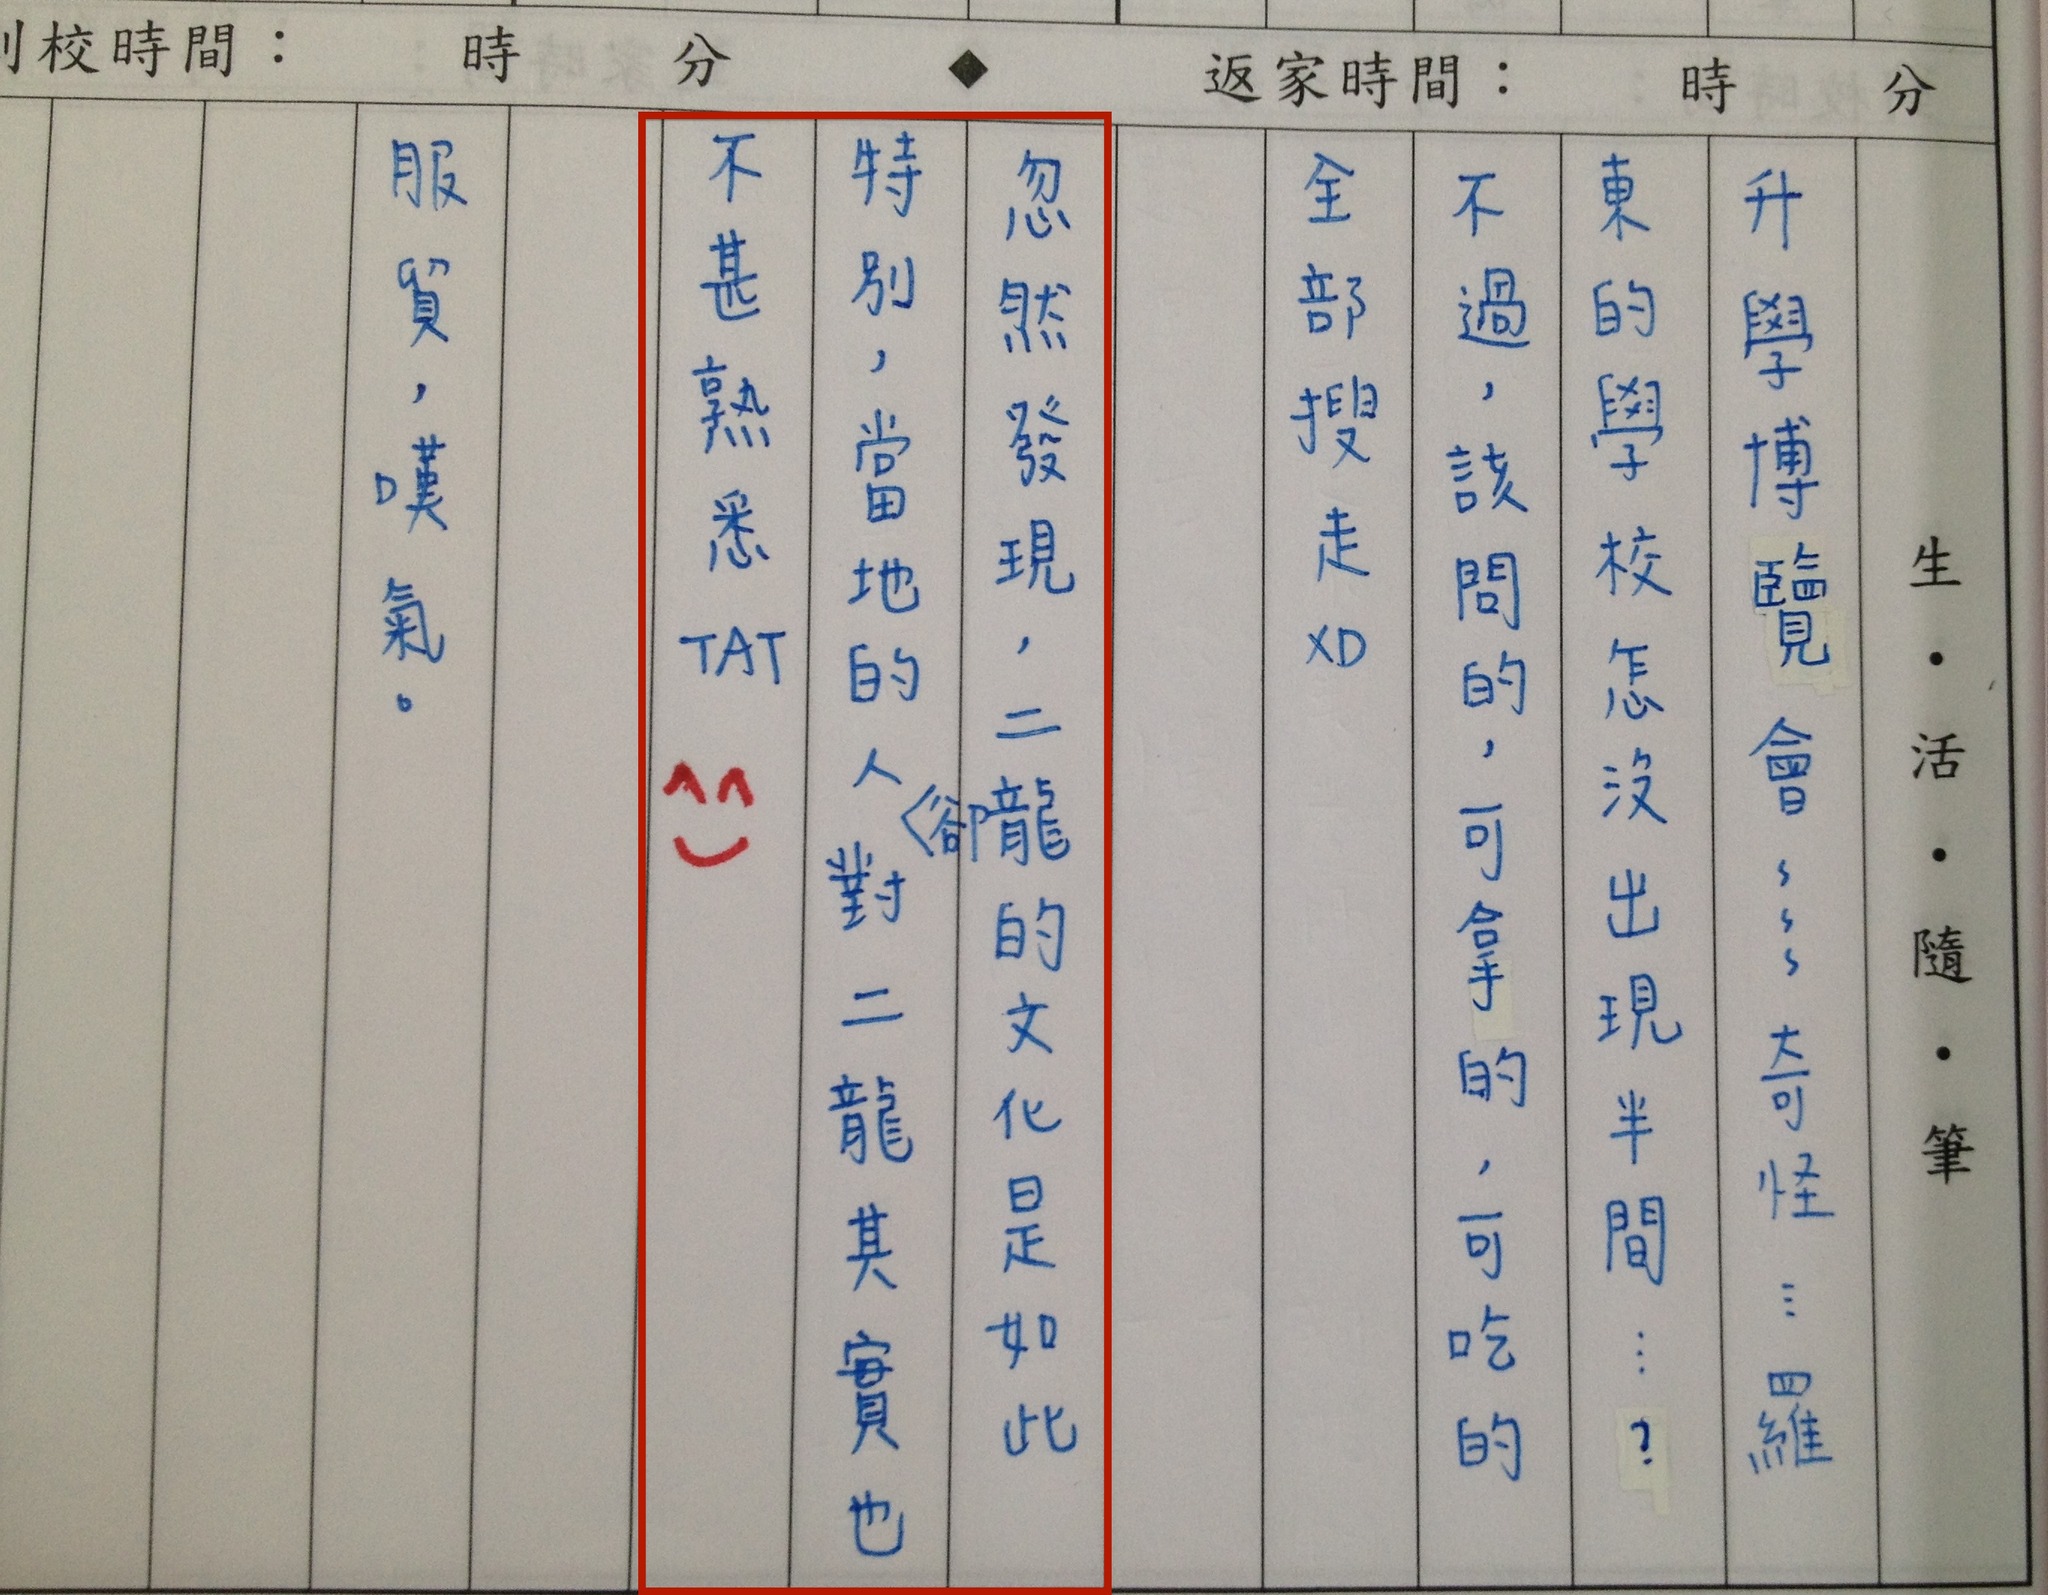 到校時間：　時　分　◆　返家時間：　時　分
生・活・隨・筆
升學博覽會~~~奇怪…羅
東的學校怎沒出現半間…?
不過，該問的，可拿的，可吃的
全部搜走XD
忽然發現，二龍的文化是如此
特別，當地的人卻對二龍其實也
不甚熟悉TAT
服貿，嘆氣。